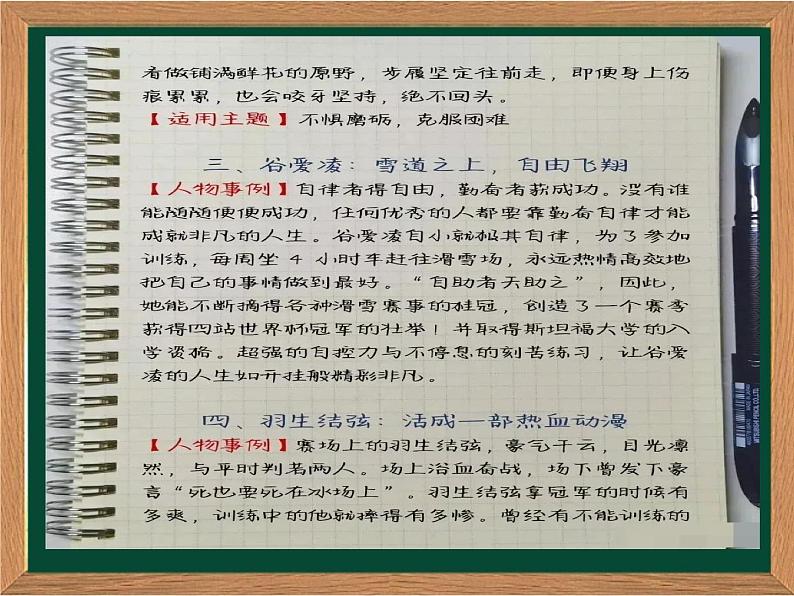 看做铺满鲜花的原野，步履坚定往前走，即便身上伤
痕累累，也会咬牙坚持，绝不回头。
【适用主题】不惧磨砺，克服困难
三、谷爱凌：雪道之上，自由飞翔
【人物事例】自律者得自由，勤奋者获成功。没有谁
能随随便便成功，任何优秀的人都要靠勤奋自律才能
成就非凡的人生。谷爱凌自小就极其自律，为了参加
训练，每周坐 4 小时车赶往滑雪场，永远热情高效地
把自己的事情做到最好。“自助者天助之”，因此，
她能不断摘得各种滑雪赛事的桂冠，创造了一个赛季
获得四站世界杯冠军的壮举！并取得斯坦福大学的入
学资格。超强的自控力与不停息的刻苦练习，让谷爱
凌的人生如开挂般精彩非凡。
四、羽生结弦：活成一部热血动漫
【人物事例】赛场上的羽生结弦，豪气干云，目光凛
然，与平时判若两人。场上浴血奋战，场下曾发下豪
言“死也要死在冰场上”。羽生结弦享冠军的时候有
多爽，训练中的他就摔得有多惨。曾经有不能训练的
MITSUBISHI PENCIL CO.,LTD.